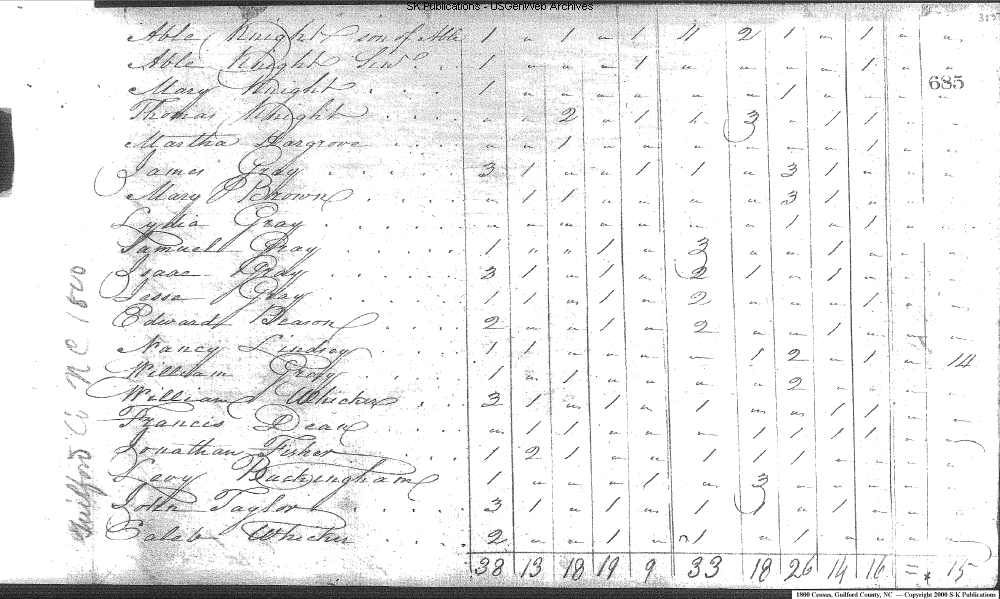 SK Publications - USGenWeb Archives
Able Knight son of Able 1 " 1 " 1 4 2 1 " 1 " "
685
Able Knight Sinr. 1 " " " 1 " " " " 1 " "
Mary Knight 1 " " " " " " 1 " " " "
Thomas Knight " " 2 " 1 1 3 " 1 1 " "
Martha Hargrove " " 1 " " " " " " 1 " "
James Gray 3 1 " " 1 1 " 3 1 " " "
Mary Brown " 1 1 " " " " 3 1 " " "
Lydia Gray " " " " " " " 1 " 1 " "
Samuel Gray 1 " " 1 " 3 " " 1 " " "
Isaac Gray 3 1 " 1 " 2 1 " 1 " " "
Jesse Gray 1 1 " 1 " 2 " " " 1 " "
Edward Beason 2 " " 1 " 2 " " 1 " " "
Nancy Lindsay 1 1 " " " " 1 2 " 1 " 14
William Gray 1 " 1 " " " " 2 " " " "
William Whicker 3 1 " 1 " 1 " " 1 1 " "
Francis Dean " 1 1 " " " 1 1 1 1 " "
Jonathan Fisher 1 2 1 " " 1 1 1 " " " "
Levy Buckingham 1 " " " 1 " 3 " " " " "
John Taylor 3 1 " 1 " 1 1 " 1 " " 1
Caleb Whicker 2 " " 1 " 1 " 1 " " " "
38 13 18 19 9 33 18 26 14 16 = 15
Guilford Co NC 1800
1800 Census, Guilford County, NC — Copyright 2000 S-K Publications